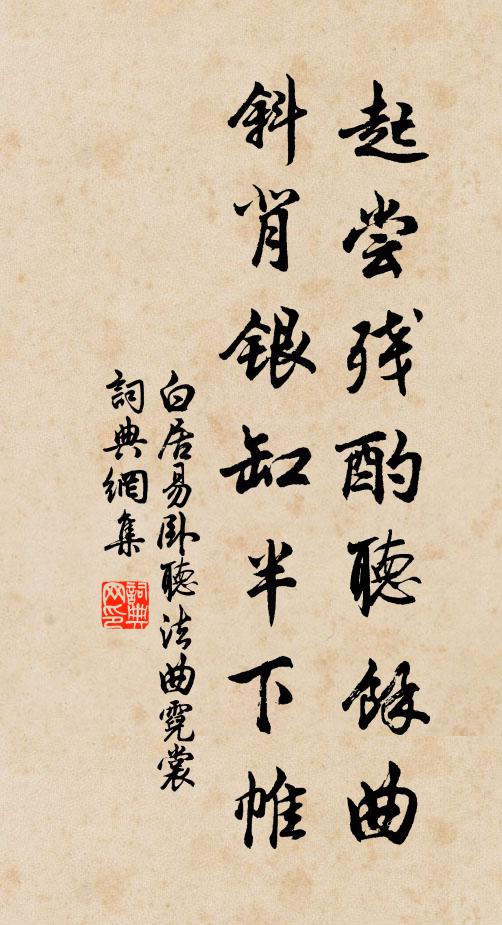 起尝残酌聽餘曲
斜背銀缸半下帷
白居易臥聽法曲霓裳
詞典網集
詞典网印